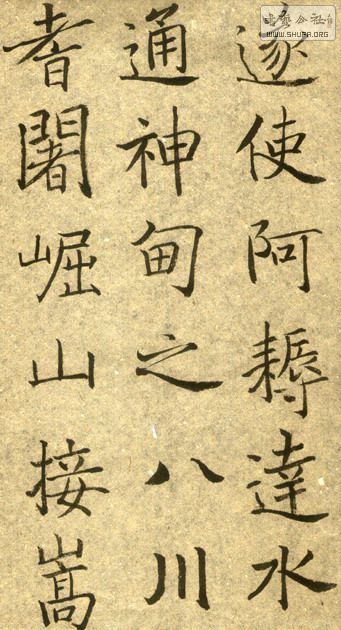 遂使阿耨達水
通神甸之八川
耆闍崛山接嵩
WWW.SHUFA.ORG